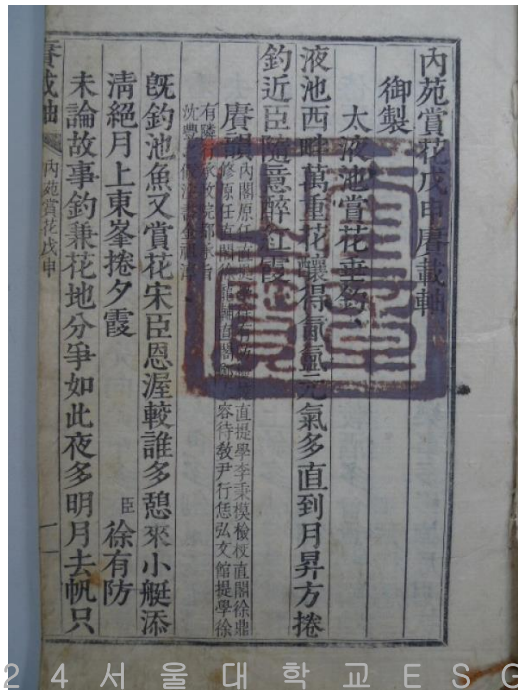 內苑賞花戊申賡載軸
御製
太液池賞花垂釣
液池西畔萬重花釀得氤氳元氣多直到月昇方捲
釣近臣隨意醉紅霞
賡韻 內閣原任 直提學李秉模檢校直閣徐鼎
修原任直閣徐龍輔直閣 容待敎尹行恁弘文館提學徐
有隣
沈豐
旣釣池魚又賞花宋臣恩渥較誰多憩來小艇添
淸絕月上東峯捲夕霞 臣徐有防
未論故事釣兼花地分爭如此夜多明月去帆只
賡載軸 內苑賞花戊申 一
24서울대학교ESG